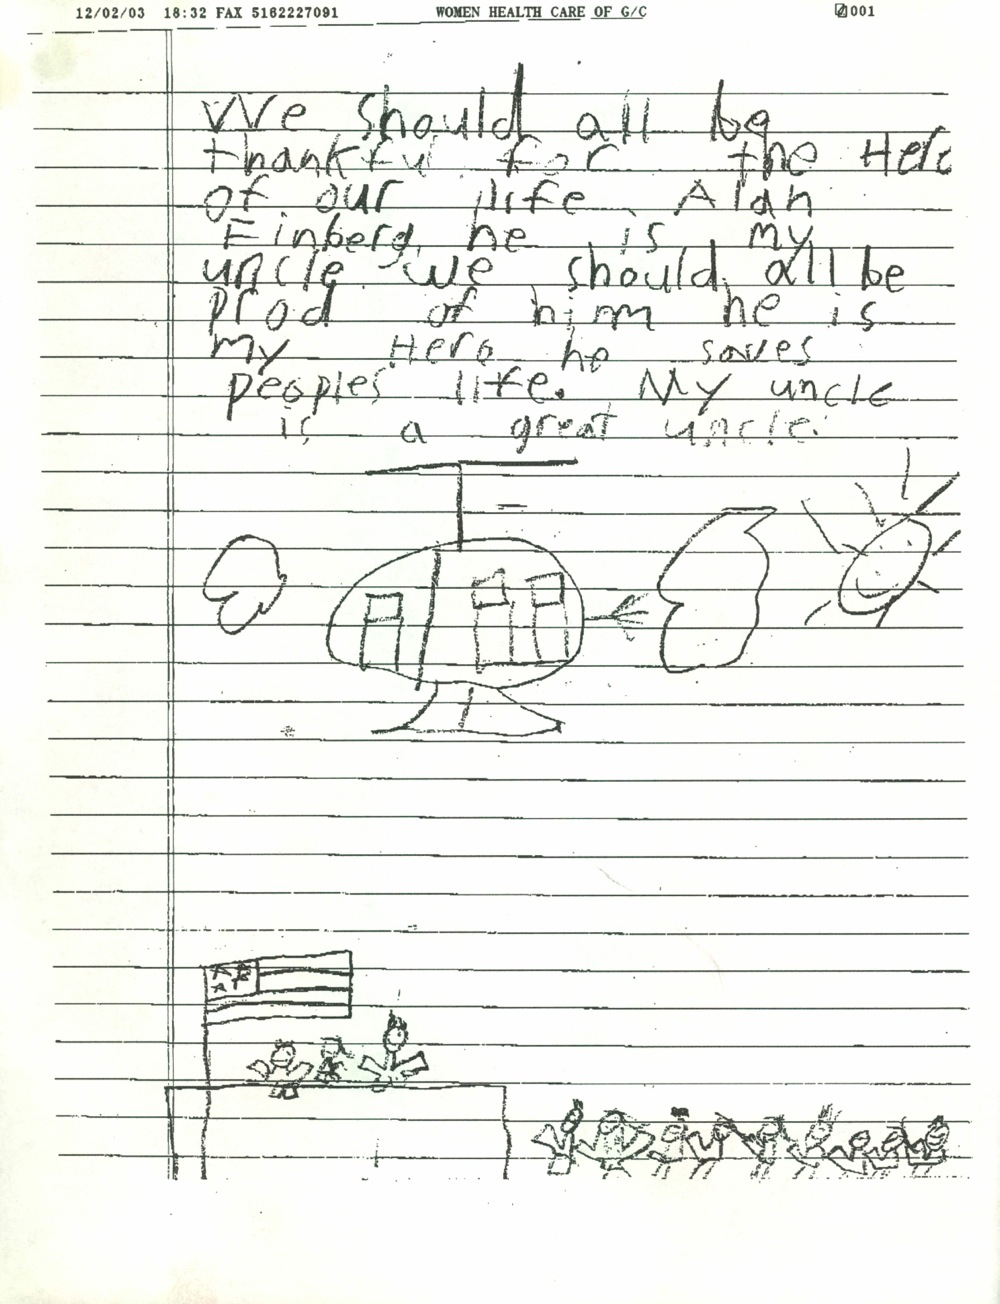 12/02/03 18:32 FAX 5162227091 WOMEN HEALTH CARE OF G/C 001
We should all be
thankful for the Hero
of our life Alan
Finberg he is my
uncle we should all be
Prod of him he is
my Hero he saves
peoples life. My uncle
is a great uncle.